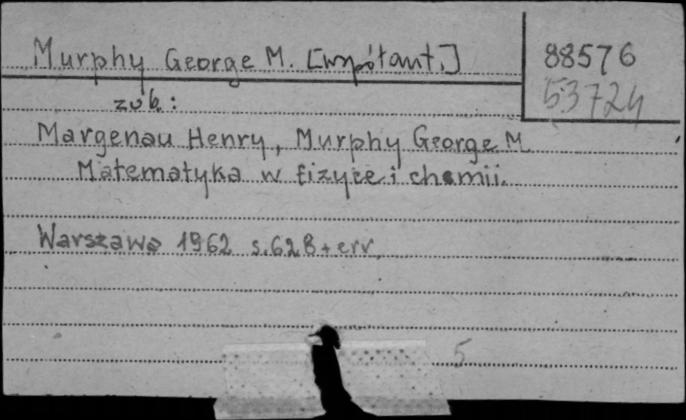 Murphy George M. [współaut.]
88576
53724
zob.:
Margenau Henry, Murphy George M.
Matematyka w fizyce i chemii.
Warszawa 1962 s.628+err.
5